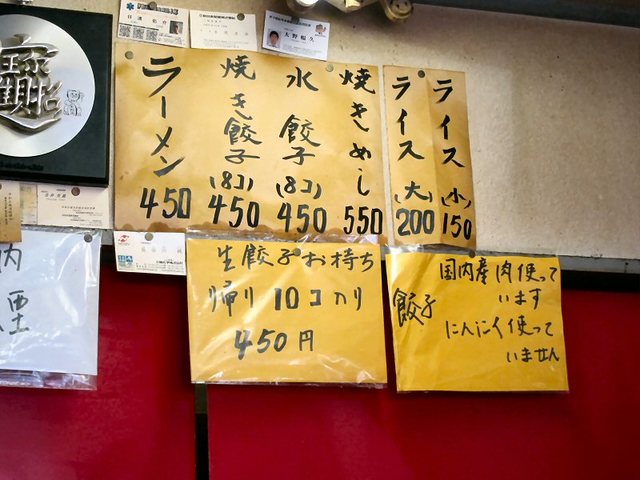 ラーメン 450
焼き餃子 (8コ) 450
水餃子 (8コ) 450
焼きめし 550
ライス (大) 200
ライス (小) 150
生餃子お持ち
帰り 10コ入り
450円
餃子
国内産肉使って
います
にんにく使って
いません
大野暢久
招財進寶